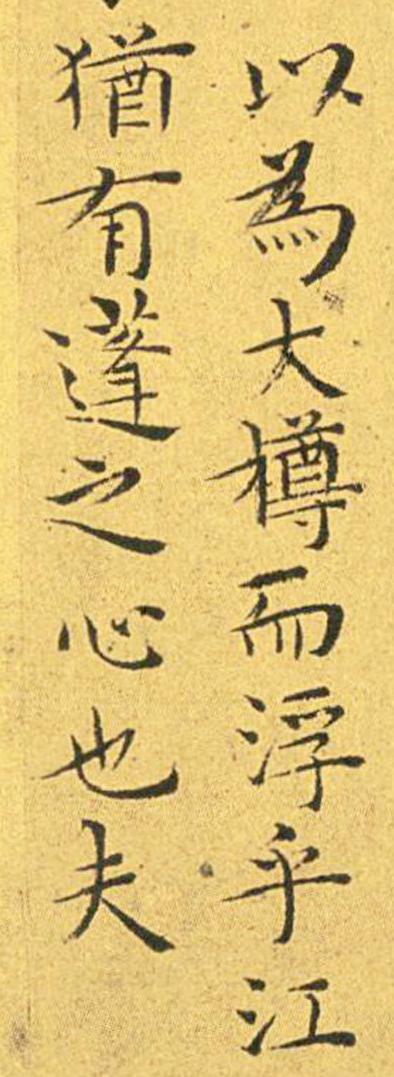 以為大樽而浮乎江
猶有蓬之心也夫